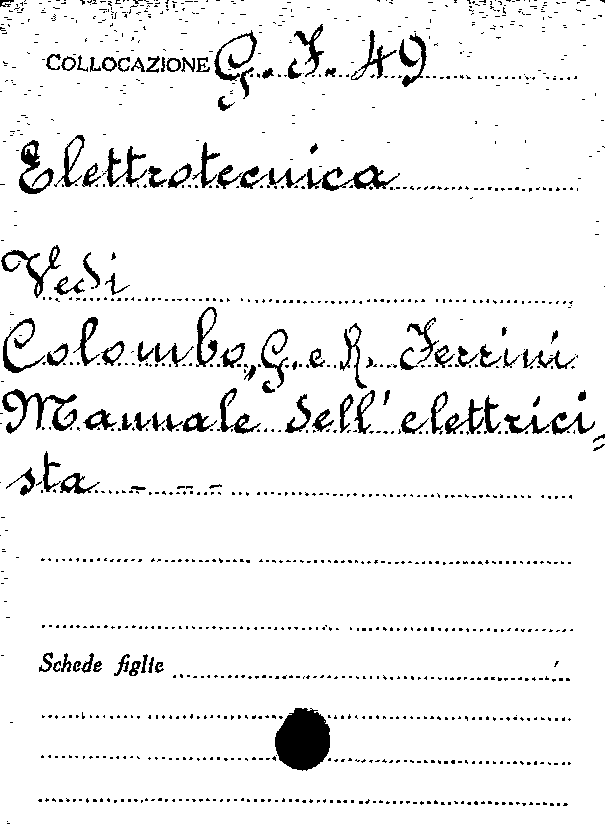 COLLOCAZIONE G. F. 49
Elettrotecnica
Vedi
Colombo, G. e R. Ferrini
Manuale dell'elettrici=
sta - - -
Schede figlie